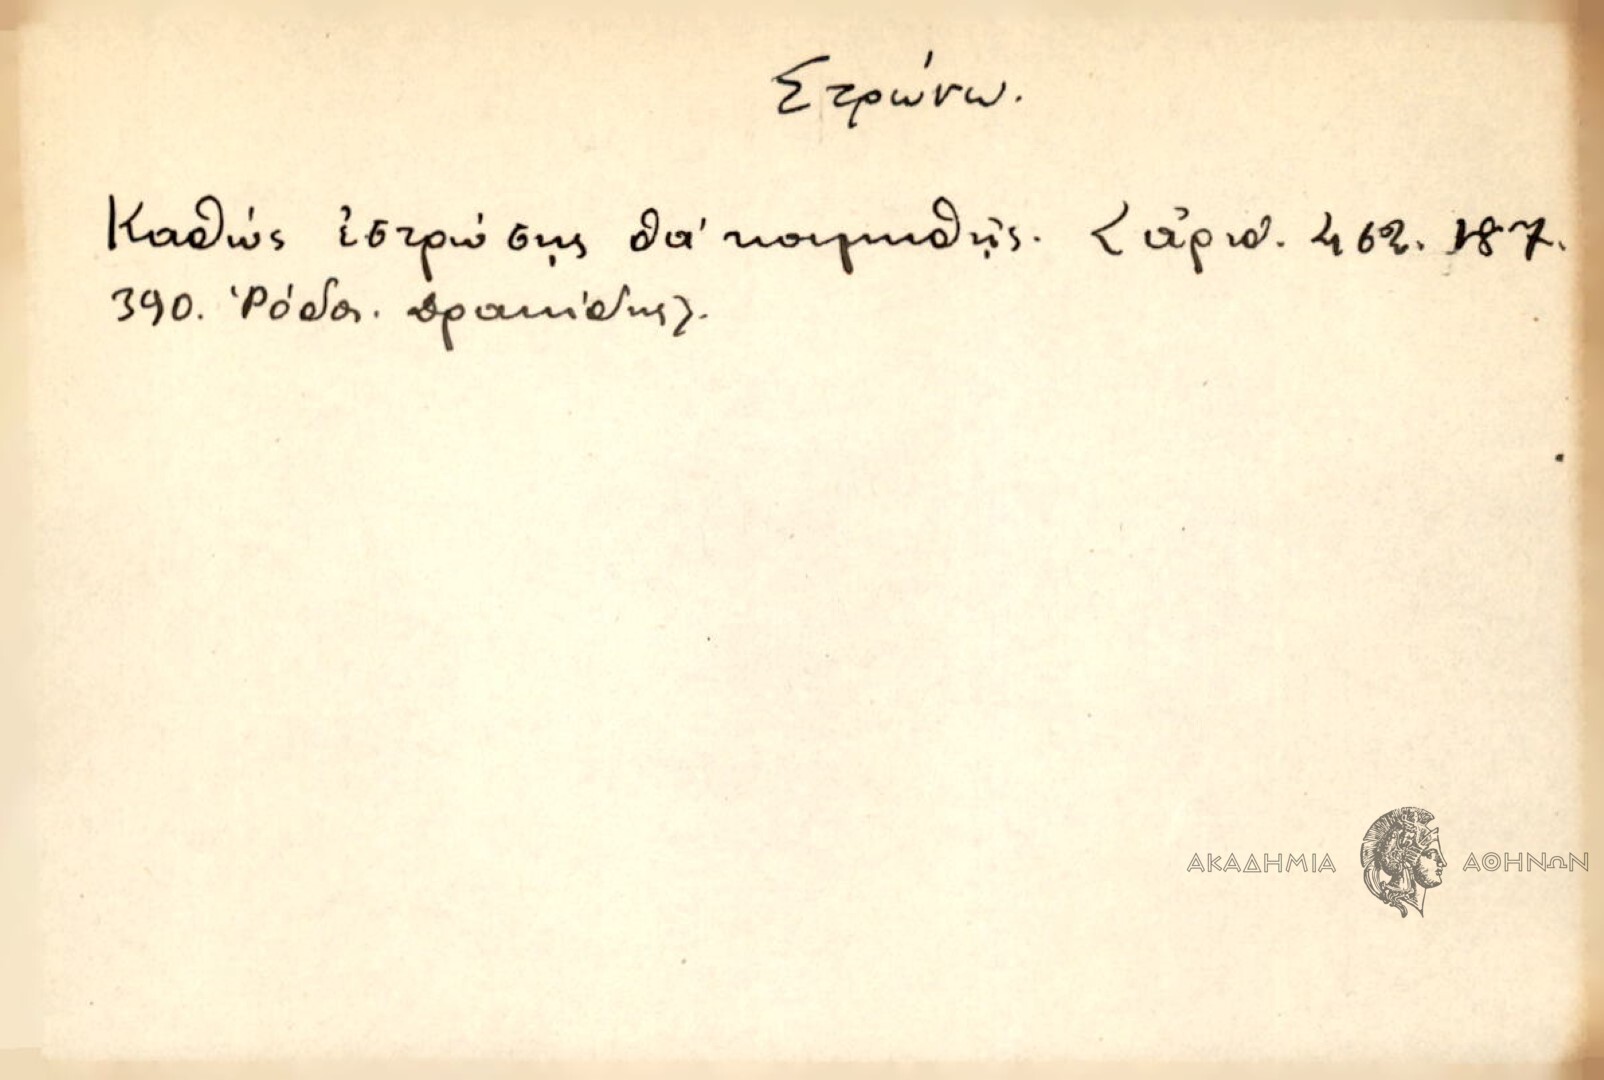 Στρώνω.
Καθώς ἐστρώσῃς θὰ κοιμηθῇς. <ἀριθ. 462. 187.
390. Ῥόδος. Δρακίδης>.
ΑΚΑΔΗΜΙΑ ΑΘΗΝΩΝ